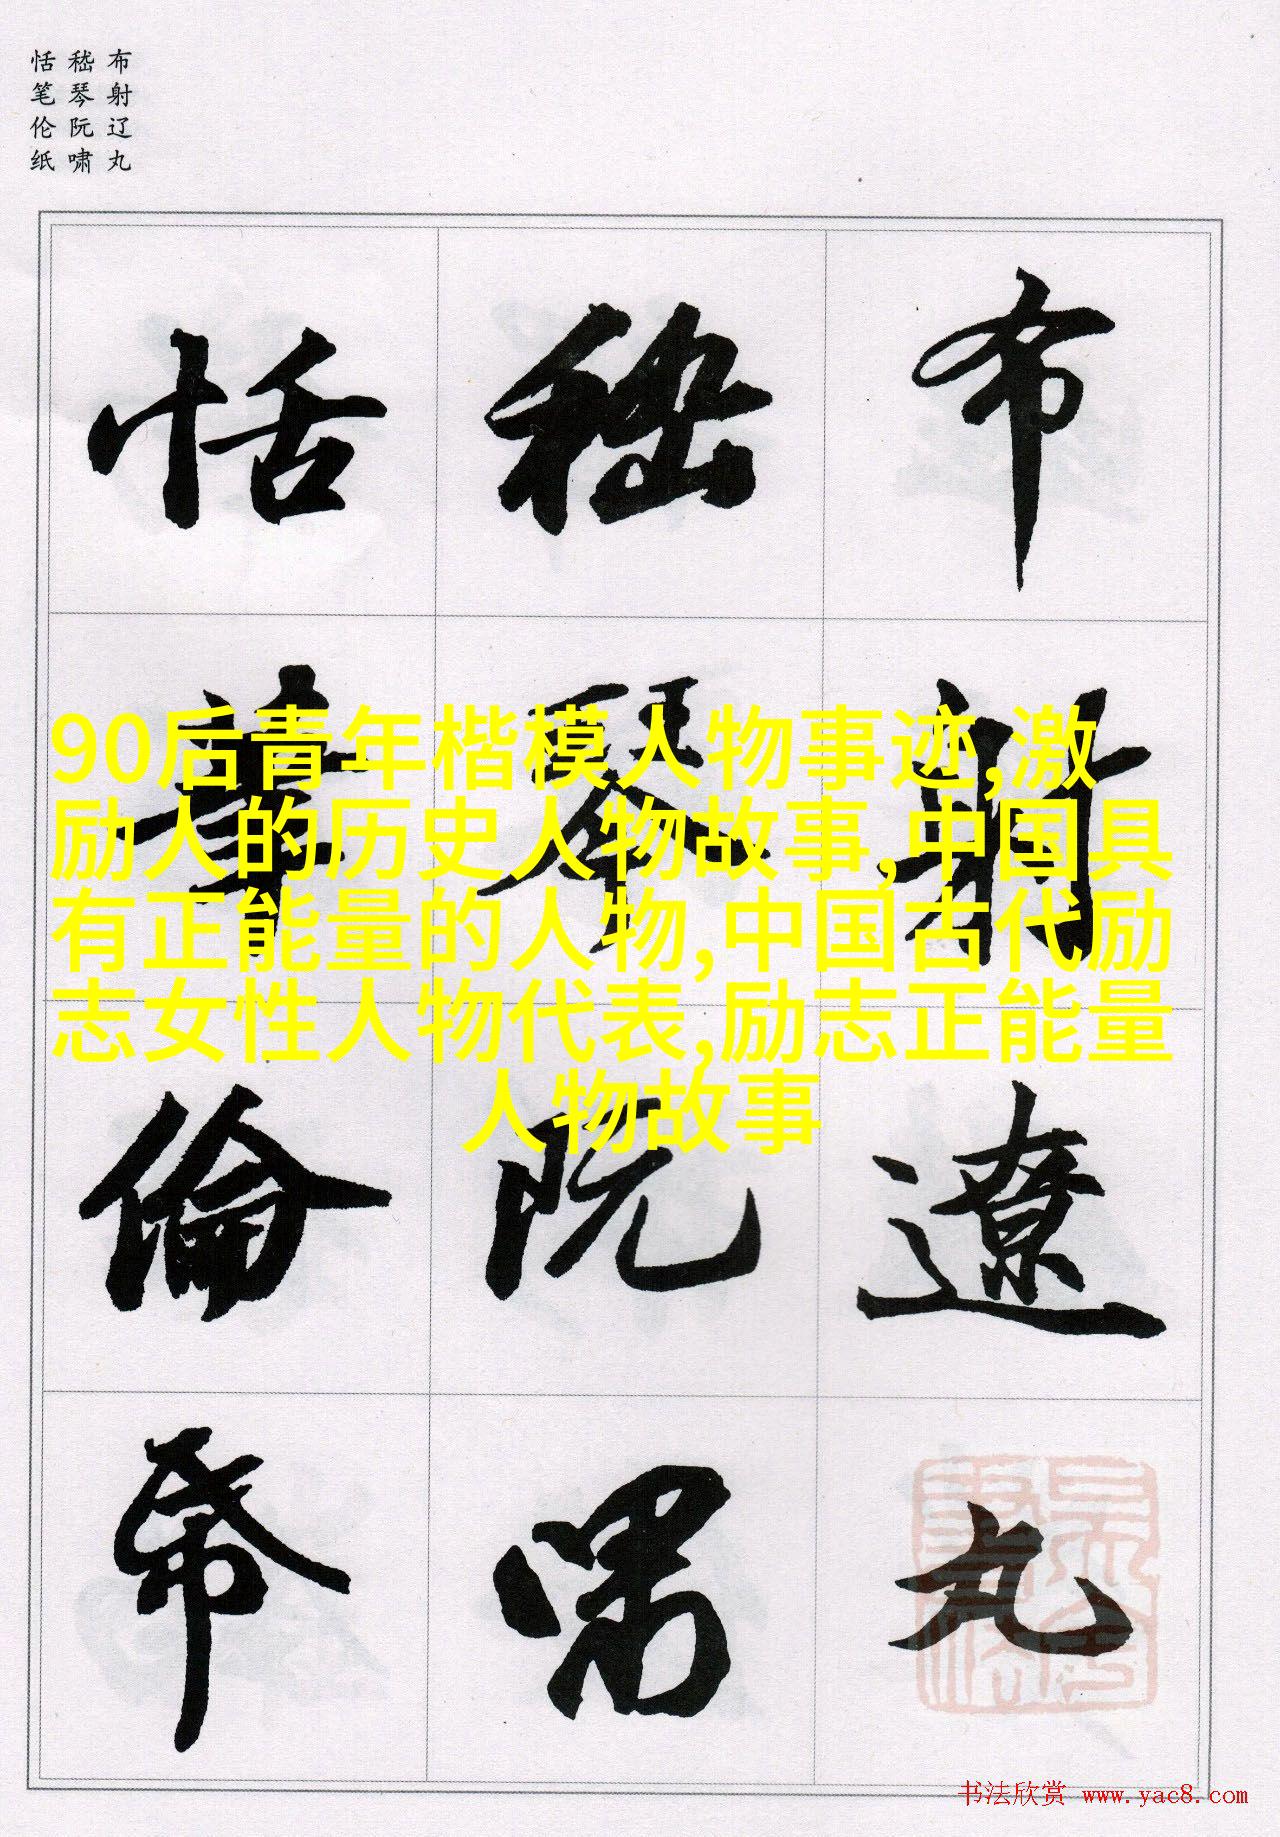 布射辽丸
嵇琴阮啸
恬笔伦纸
布射遼丸
嵇琴阮嘯
恬筆倫帋
90后青年楷模人物事迹,激
励人的历史人物故事,中国具
有正能量的人物,中国古代励
志女性人物代表,励志正能量
人物故事
书法欣赏 www.yac8.com